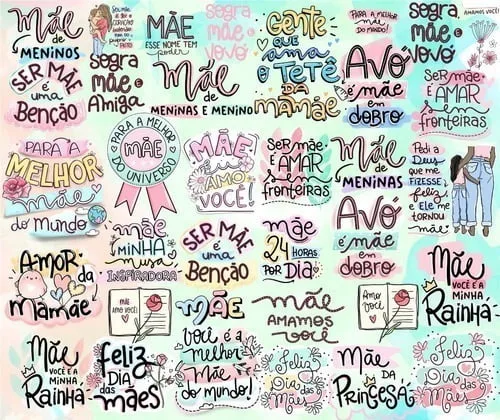 Mãe
de
MENINOS
MÃE
ESSE NOME TEM
poder
Sogra
MÃE e
VOVÓ
Gente
QUE
ama
O TETÊ
DA
mamãe
PARA A MELHOR
MÃE
DO MUNDO!
Sogra
MÃE e
VOVÓ
AMAMOS VOCÊ!
SER MÃE
é uma
Benção
Sogra
MÃE e
Amiga
Mãe
DE
MENINAS E MENINO
AVÓ
é MÃE
em
DOBRO
SER MÃE
É AMAR
sem
fronteiras
PARA A
MELHOR
MÃE
do Mundo
PARA A MELHOR
MÃE
DO UNIVERSO
MÃE
Eu
AMO
VOCÊ!
SER MÃE
É AMAR
sem
fronteiras
Mãe
DE
MENINAS
Pedi a
Deus
que me
FIZESSE
feliz
e Ele me
tornou
mãe
mãe
MINHA
musa
INSPIRADORA
SER MÃE
é uma
Benção
mãe
24
HORAS
POR
DIA
AVÓ
é MÃE
em
DOBRO
AMOR
da
Mamãe
MÃE
AMO VOCÊ!
MÃE
você é a
melhor
Mãe
do mundo!
mãe
AMAMOS
você
Amo
você!
Mãe
VOCÊ É A
MINHA
Rainha
Mãe
VOCÊ É A
MINHA
Rainha
feliz
DIA
das
mães
Feliz
Dia das
Mães
Mãe
DA
PRINCESA
Feliz
Dia das
Mães